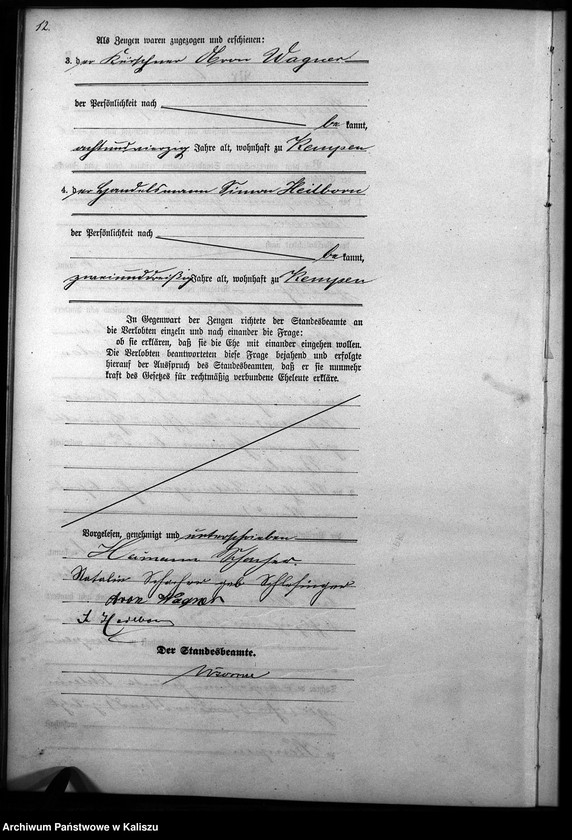 12.
Als Zeugen waren zugezogen und erschienen:
3. der Kürschner Aron Wagner
der Persönlichkeit nach
be kannt,
achtundvierzig Jahre alt, wohnhaft zu Kempen
4. der Handelsmann Simon Heilborn
der Persönlichkeit nach
be kannt,
zweiunddreißig Jahre alt, wohnhaft zu Kempen
In Gegenwart der Zeugen richtete der Standesbeamte an
die Verlobten einzeln und nach einander die Frage:
ob sie erklären, daß sie die Ehe mit einander eingehen wollen.
Die Verlobten beantworteten diese Frage bejahend und erfolgte
hierauf der Ausspruch des Standesbeamten, daß er sie nunmehr
kraft des Gesetzes für rechtmäßig verbundene Eheleute erkläre.
Vorgelesen, genehmigt und unterschrieben
Heimann
Natalie geb Schlesinger
Aron Wagner
S Heilborn
Der Standesbeamte.
Archiwum Państwowe w Kaliszu